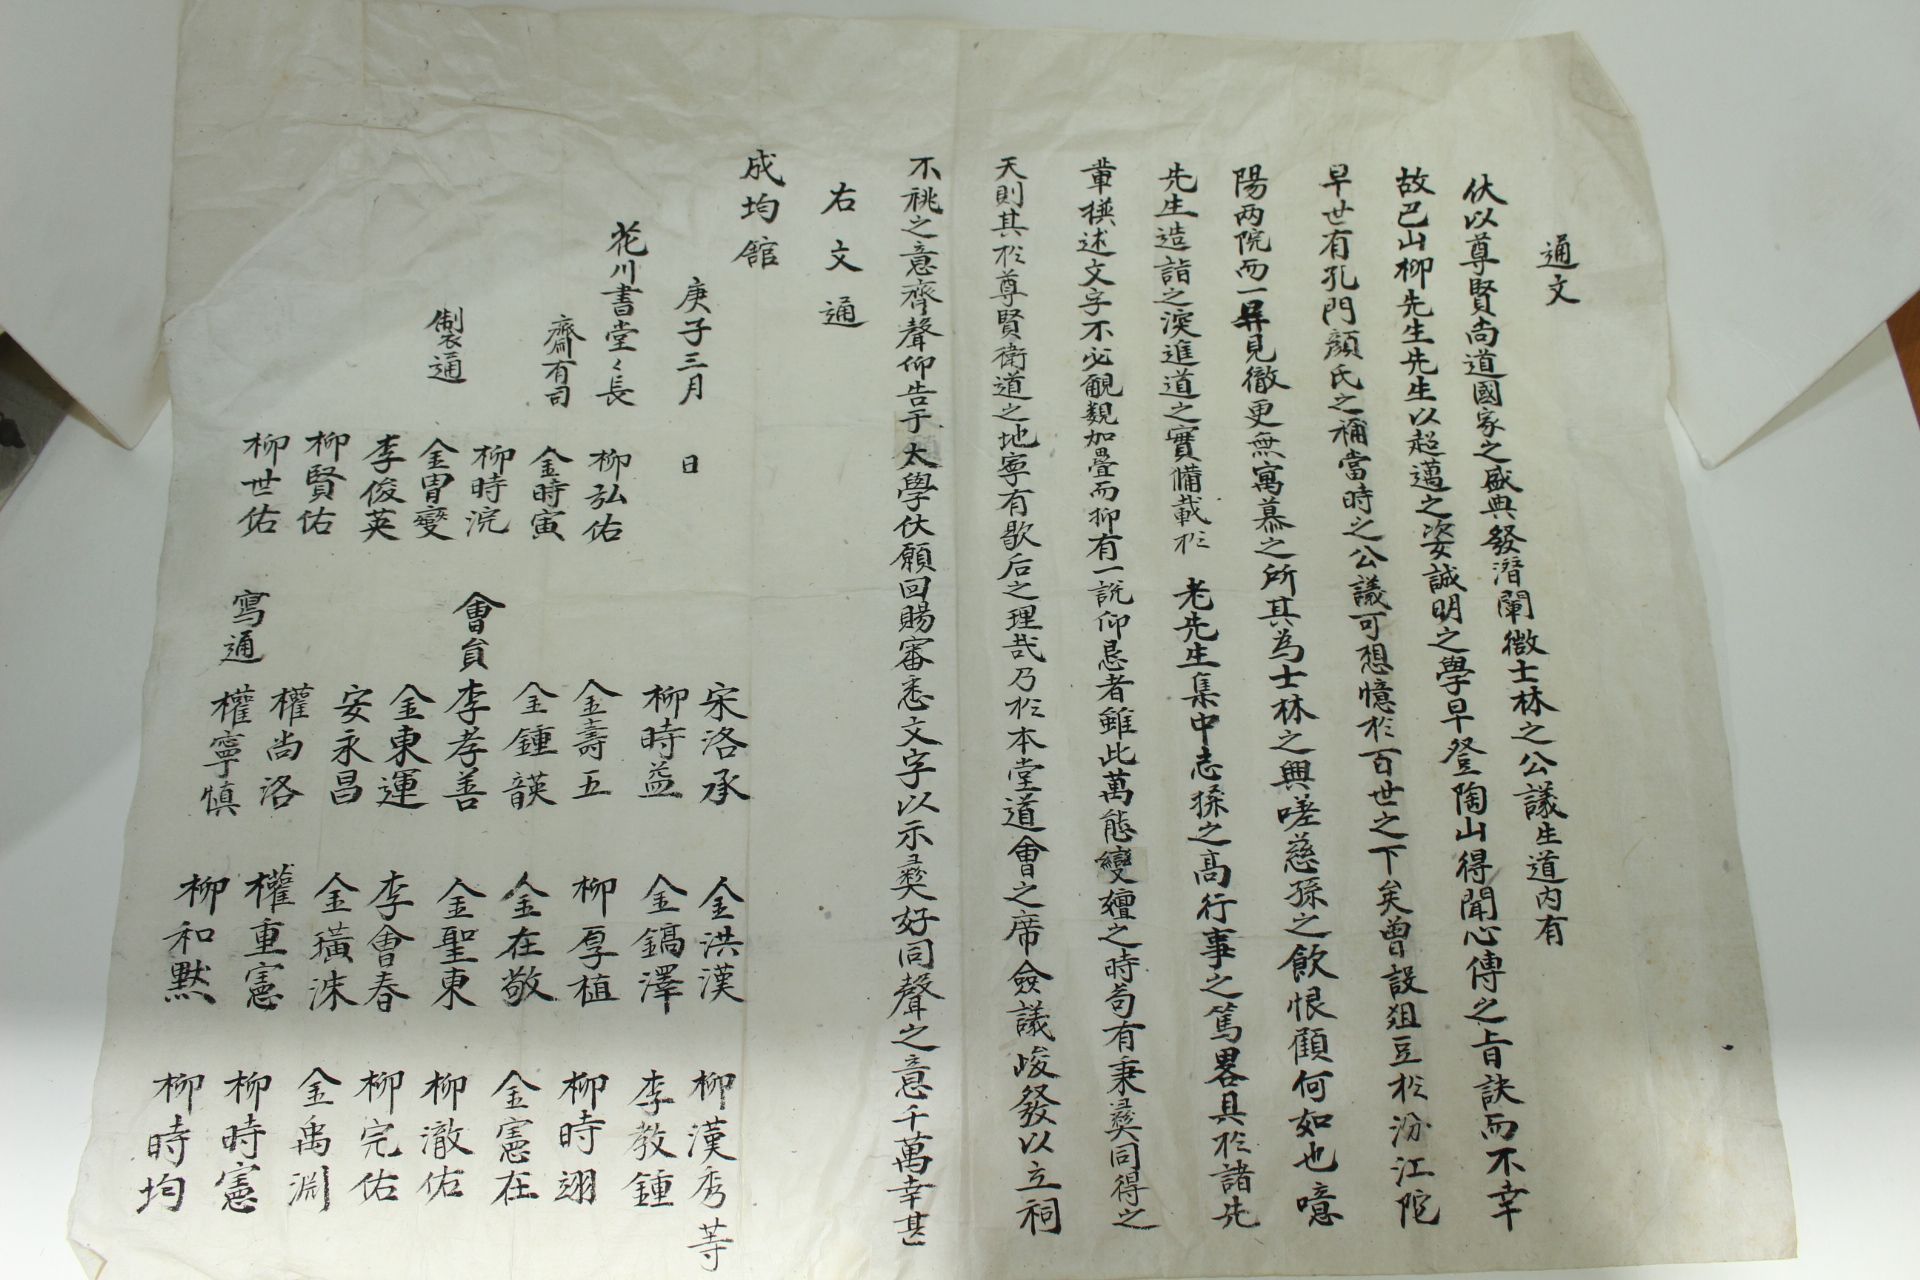 通文
伏以尊賢尚道國家之盛典發潛闡微士林之公議生道內有
故巴山柳先生先生以超邁之姿誠明之學早登陶山得聞心傳之旨訣而不幸
早世有孔門顔氏之稱當時之公議可想憶於百世之下矣曾設俎豆於汾江陀
陽兩院而一畀見撤更無寓慕之所其為士林之興嗟慈孫之飲恨顧何如也噫
先生造詣之深進道之實備載於 老先生集中志孫之高行事之篤畧具於諸先
輩撰述文字不必覼䚓加疊而抑有一說仰忌者雖此萬態變嬗之時苟有秉彜同得之
天則其於尊賢衛道之地寧有歇后之理哉乃於本堂道會之席僉議峻發以立祠
不祧之意齊聲仰告于太學伏願回賜審悉文字以示彜好同聲之意千萬幸甚
右文通
成均館
庚子三月 日
花川書堂々長 柳弘佑
齋有司 金時寅
柳時浣
製通 金胄變
李俊英
柳賢佑
柳世佑
會員
宋洛承 金洪漢 柳漢秀 等
柳時益 金鎬澤 李教鍾
金壽五 柳厚植 柳時翊
金鍾韺 金在敬 金憲在
李孝善 金聖東 柳澈佑
金東運 李會春 柳完佑
安永昌 金璜洙 金禹淵
權尚洛 權重憲 柳時憲
寫通 權寧慎 柳和默 柳時均